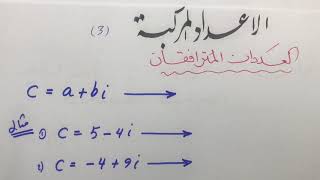 الاعداد المركبة
(3)
العددان المترافقان
C = a + bi →
مثال ① C = 5 - 4i →
② C = -4 + 9i →